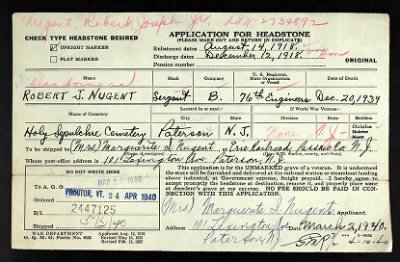 Nugent, Robert Joseph Jr.
CHECK TYPE HEADSTONE DESIRED
UPRIGHT MARKER
FLAT MARKER
APPLICATION FOR HEADSTONE
(PLEASE MAKE OUT AND RETURN IN DUPLICATE)
Enlistment dates August 14, 1918.
Discharge dates December 12, 1918. Hon
Pension number
ORIGINAL
Name
Rank
Company
U. S. Regiment, State Organization, or Vessel
Date of Death
ROBERT J. NUGENT Sergeant B. 76th Engineers Dec. 20, 1939
Name of Cemetery
Located in or near—
If World War Veteran—
Holy Sepulchre Cemetery Paterson N. J. None N. J.
Christian
Hebrew
None
To be shipped to Mrs. Marguerite L. Nugent, Erie Railroad, Passaic Co. N. J.
Whose post-office address is 101 Lexington Ave Paterson, N. J.
DO NOT WRITE HERE
To A. G. O.
PROCTOR, VT. 24 APR 1940
ORDERED
2447125
5/3/40
WAR DEPARTMENT
O. Q. M. G. Form No. 623
This application is for the UNMARKED grave of a veteran. It is understood the stone will be furnished and delivered at the railroad station or steamboat landing above indicated, at Government expense, freight prepaid. I hereby agree to promptly accept the headstone at destination, remove it, and properly place same at decedent's grave at my expense. NO FEE SHOULD BE PAID IN CONNECTION WITH THIS APPLICATION.
Mrs. Marguerite L. Nugent Applicant
101 Lexington Av March 2, 1940.
Paterson N. J.
4-10-40